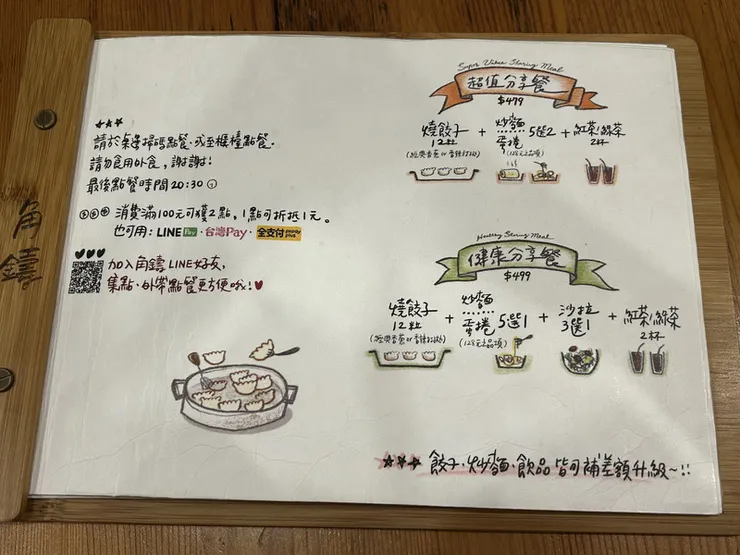 角鑄
★★★
請於桌邊掃碼點餐.或至櫃檯點餐.
請勿食用外食,謝謝!
最後點餐時間20:30
消費滿100元可獲2點,1點可折抵1元。
也可用:LINE Pay・台灣Pay・全支付
加入角鑄LINE好友,
集點・外帶點餐更方便哦!♥
Super Value Sharing Meal
超值分享餐
$479
燒餃子12粒 + 炒麵 蛋捲 5選2 + 紅茶/綠茶 2杯
Healthy Sharing Meal
健康分享餐
$499
燒餃子12粒 + 炒麵 蛋捲 5選1 + 沙拉 3選1 + 紅茶/綠茶 2杯
(128元品項)
★★★ 餃子・炒麵・飲品皆可補差額升級~!!